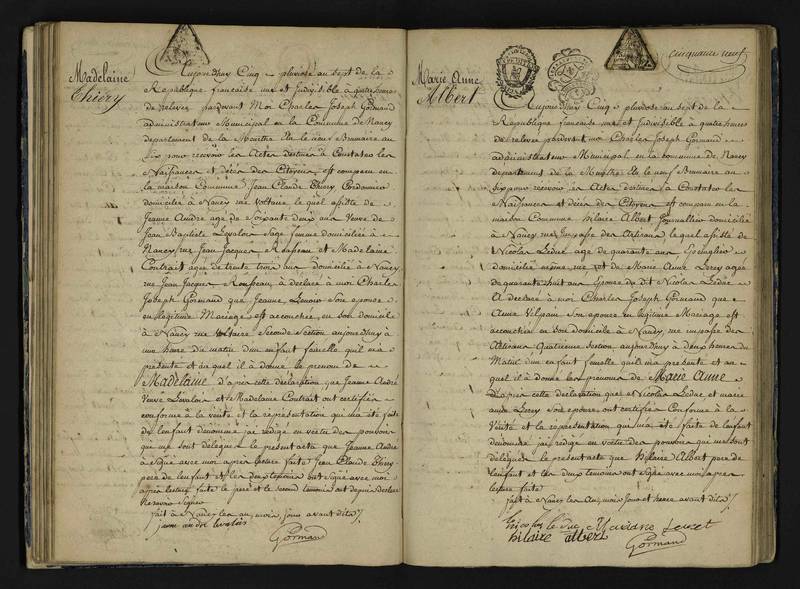 Madelaine
Thiery
Aujourdhuy Cinq pluviose au sept de la
Republique francaise une et Indivisible à quatre heures
de relevée pardevant Moi Charles Joseph Gormand
administrateur Municipal en la Commune de Nancy
departement de la Meurthe Elu le neuf Brumaire an
Six pour recevoir les Actes destinés à Constater les
Naissances et décès des Citoyens, est comparu en
la maison Commune Jean Claude Thiery Cordonnier
domicilié à Nancy rue Voltaire, le quel assisté de
Jeanne André agé de Soixante deux ans veuve de
Jean Baptiste Levaloir Sage femme domiciliée à
Nancy rue Jean Jacques Rousseau et Madelaine
Contrait agée de trente trois ans Domicilié à Nancy
rue Jean Jacques Rousseau, à declaré à moi Charles
Joseph Gormand que Jeanne son épouse
en légitime Mariage est accouchée, en son domicile
à Nancy rue Voltaire Seconde Section aujourdhuy à
une heure du matin d'un enfant femelle quil m'a
présenté et au quel il à donné le prenom de
Madelaine d'après cette déclaration que Jeanne André
Veuve Levaloir et Madelaine Contrait ont certifiée
conforme à la vérité et la représentation qui m'a été faite
de l'enfant denommé j'ai rédigé en vertu des pouvoirs
qui me sont délégués le present acte que Jeanne André
à signé avec moi après lecture faite Jean Claude Thiery
pere de l'enfant et les deux témoins ont signé avec moi
après lecture faite le pere et le second temoin ont depuis declaré
ne savoir signer
fait à Nancy les an, mois, jour avant dits
jeanne andré levaloir
Gormand
cinquante neuf
Marie Anne
Albert
Aujourdhuy Cinq pluviose au sept de la
Republique francaise une et Indivisible à quatre heures
de relevée pardevant moi Charles Joseph Gormand
administrateur Municipal en la commune de Nancy
departement de la Meurthe Elu le neuf Brumaire an
Six pour recevoir les Actes destinés à Constater les
Naissances et décès des Citoyens est comparu en la
maison Commune hilaire Albert Journallier domicilié
à Nancy rue impasse des Artisans le quel assisté de
Nicolas Leduc agé de quarante ans Epinglier
domicilié même rue et de Marie Anne Leroy agée
de quarante huit ans Epouse du dit Nicolas Leduc
A declaré à moi Charles Joseph Gormand que
Anne son épouse en légitime Mariage est
accouchée en son domicile à Nancy rue impasse des
Artisans Quatrieme Section aujourdhuy à deux heures du
Matin d'un enfant femelle quil m'a présenté et au
quel il à donné les prenoms de Marie Anne
D'après cette declaration que et Nicolas Leduc et marie
anne Leroy son epouse ont certifiée Conforme à la
Vérité et la representation qui m'a été faite de l'enfant
denommé j'ai rédigé en vertu des pouvoirs qui me sont
délégués le present acte que hilaire Albert pere de
l'enfant et les deux temoins ont Signé avec moi après
lecture faite
fait à Nancy les an, mois jour et heure avant dits
Nicolas le duc Mariane
hilaire albert
Gormand